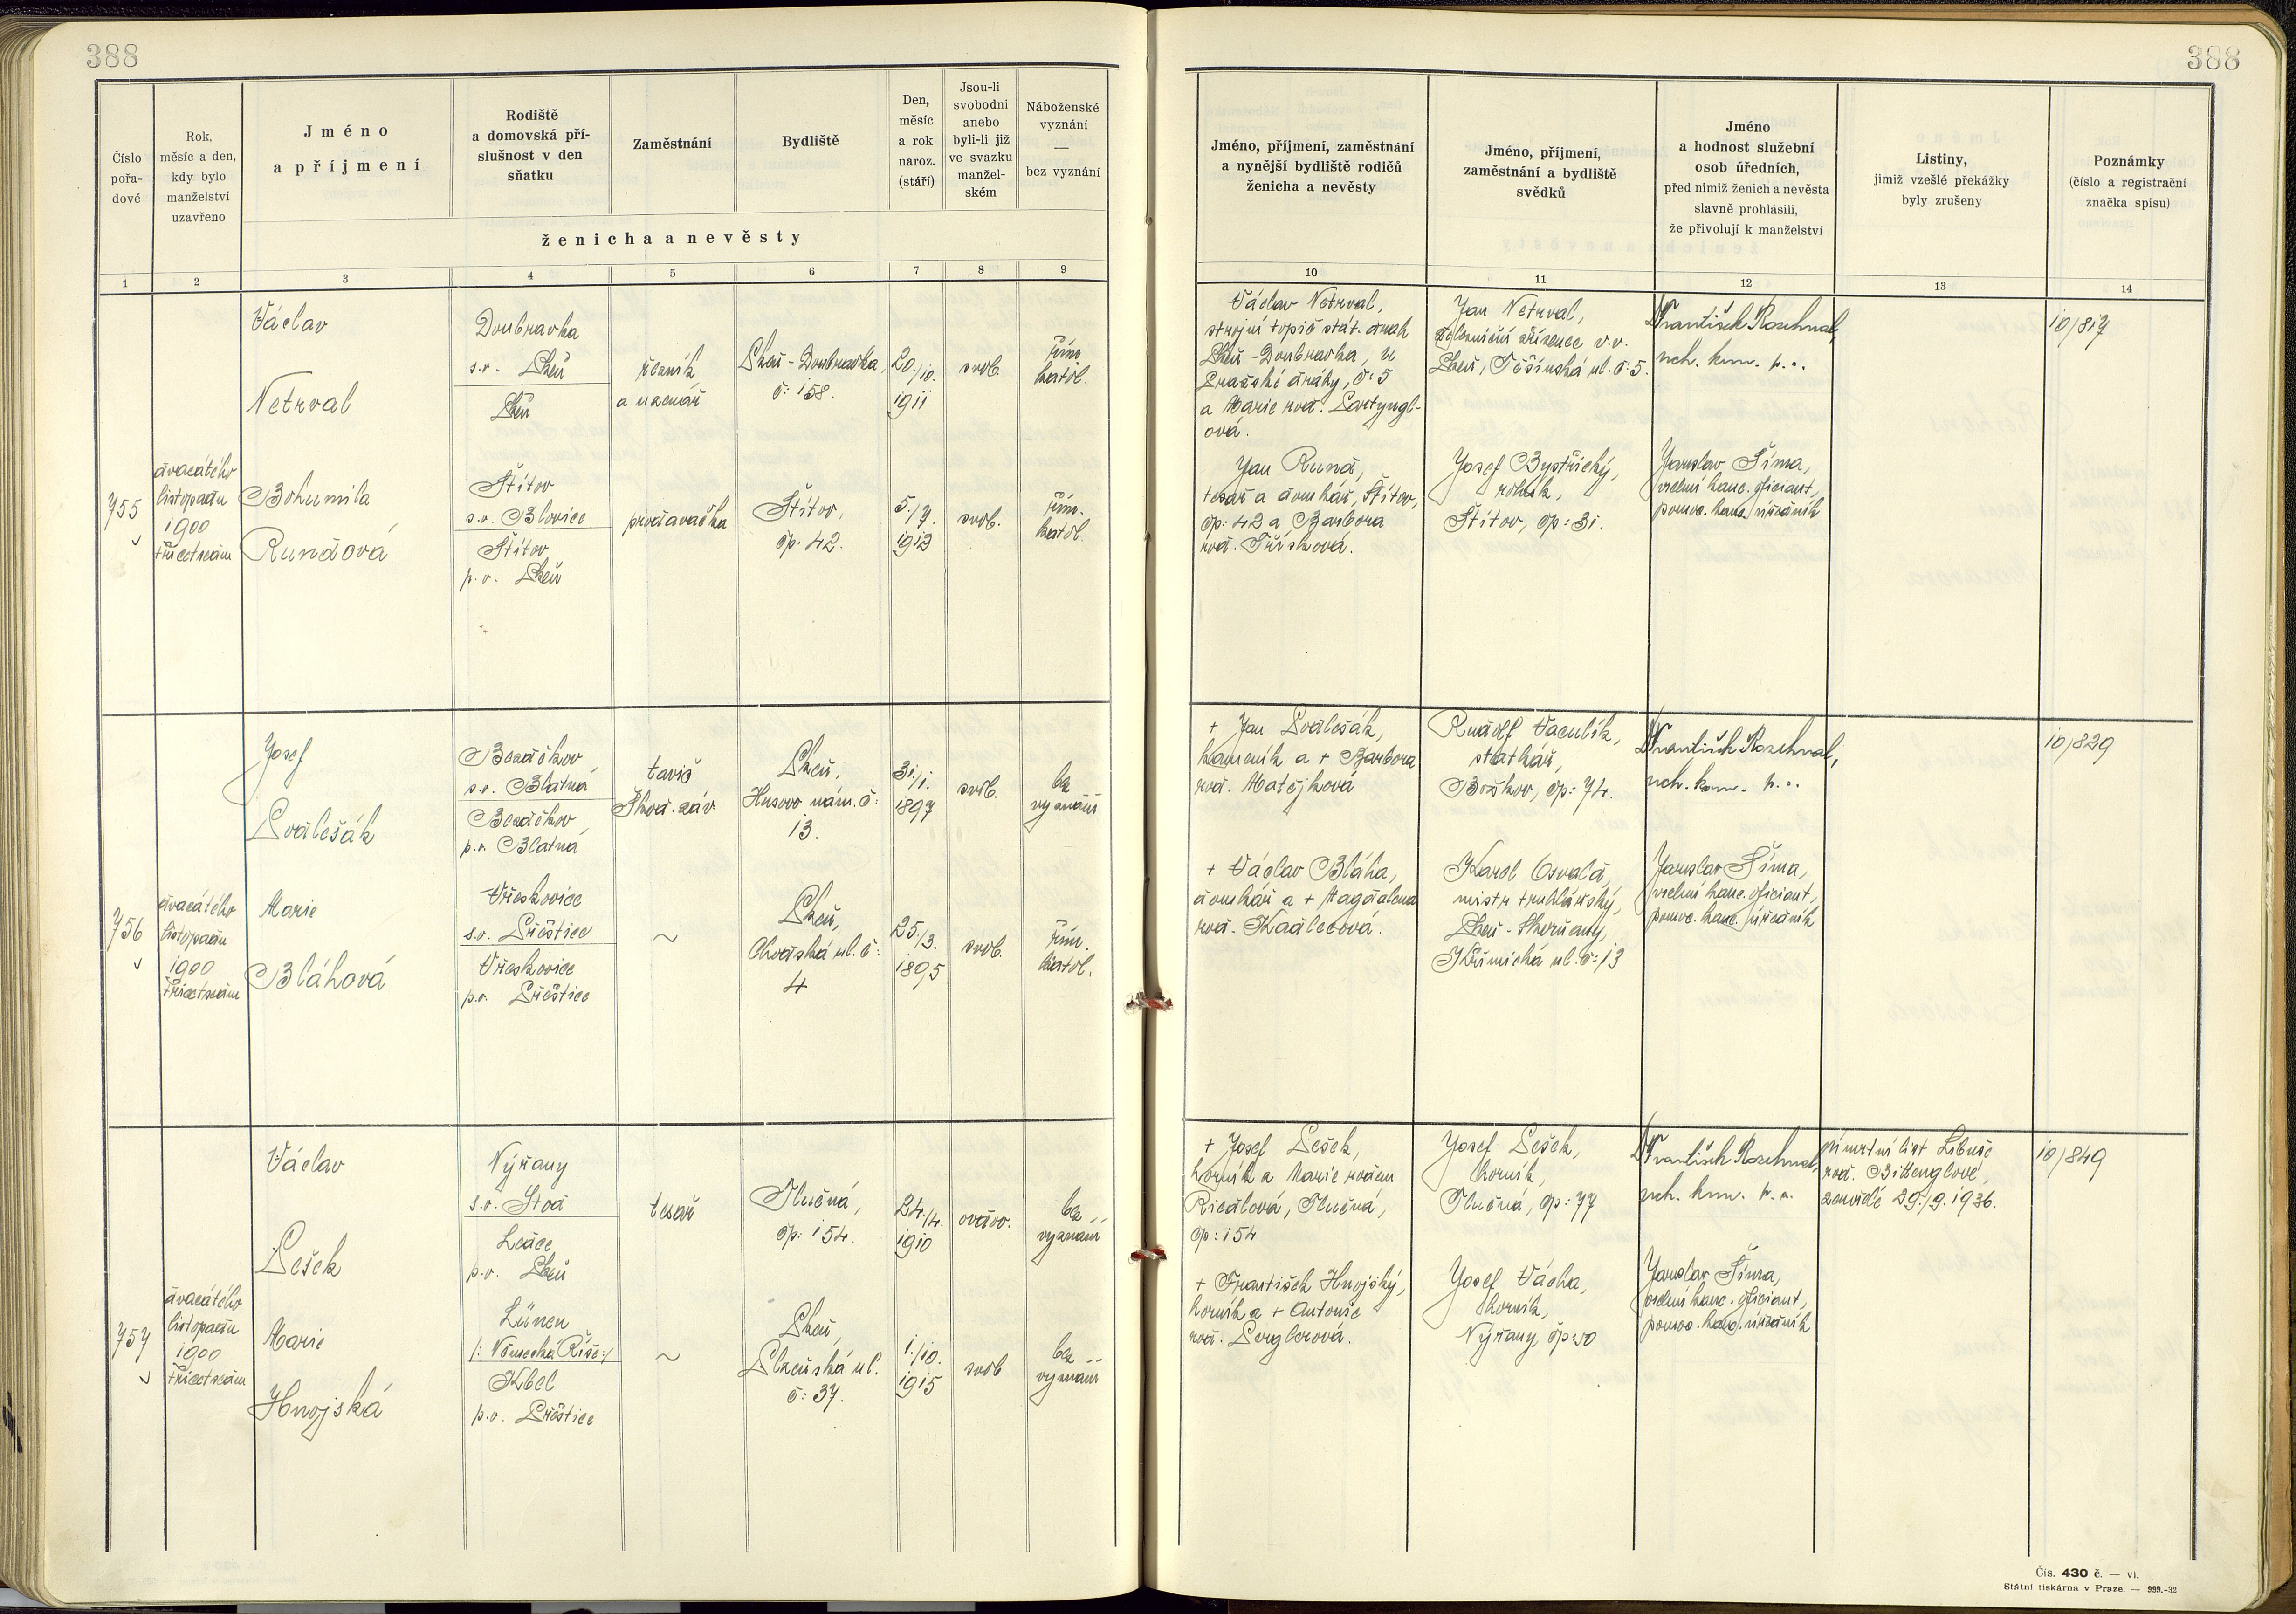 388
388
Číslo
pořa-
dové
Rok,
měsíc a den,
kdy bylo
manželství
uzavřeno
Jméno
a příjmení
Rodiště
a domovská pří-
slušnost v den
sňatku
Zaměstnání
Bydliště
Den,
měsíc
a rok
naroz.
(stáří)
Jsou-li
svobodni
anebo
byli-li již
ve svazku
manžel-
ském
Náboženské
vyznání
—
bez vyznání
ženicha a nevěsty
Jméno, příjmení, zaměstnání
a nynější bydliště rodičů
ženicha a nevěsty
Jméno, příjmení,
zaměstnání a bydliště
svědků
Jméno
a hodnost služební
osob úředních,
před nimiž ženich a nevěsta
slavně prohlásili,
že přivolují k manželství
Listiny,
jimiž vzešlé překážky
byly zrušeny
Poznámky
(číslo a registrační
značka spisu)
1 2 3 4 5 6 7 8 9 10 11 12 13 14
755
dvacátého
listopadu
1900
třicetsedm
Václav
Netrval
Doubravka
s.o. Plzeň
Plzeň
řezník
a uzenář
Plzeň-Doubravka
č: 158.
20./10.
1911
svob.
řím.
katol.
Václav Netrval,
strojní topič stát. drah
Plzeň-Doubravka, u
Pražské dráhy, č: 5
a Marie roz.
ová.
Jan Netrval,
železniční zřízenec v.v.
Plzeň, Těšínská ul. č: 5.
František
10/817
Bohumila
Rundová
Štítov
s.o. Blovice
Štítov
p.o. Plzeň
prodavačka
Štítov,
čp: 42.
5./7.
1912
svob.
řím.
katol.
Jan Rund,
tesař a domkář, Štítov,
čp: 42 a Barbora
rod. Tříšková.
Josef Bystřický,
rolník,
Štítov, čp: 31.
Jaroslav Šíma,
vrchní kanc. oficiant,
pomoc. kanc. úředník
756
dvacátého
listopadu
1900
třicetsedm
Josef
Podlešák
Bezděkov
s.o. Blatná
Bezděkov
p.o. Blatná
tavič
Škod. záv.
Plzeň,
Husovo nám. č:
13.
31./1.
1897
svob.
bez
vyznání
+ Jan Podlešák,
kameník a + Barbora
rod. Matějková
Rudolf Vaculík,
statkář,
Božkov, čp: 74.
František
10/829
Marie
Bláhová
Vřeskovice
s.o. Přeštice
Vřeskovice
p.o. Přeštice
~
Plzeň,
Chodská ul. č:
4
25./3.
1895
svob.
řím.
katol.
+ Václav Bláha,
domkář a + Magdalena
rod. Kadlecová.
Karel Osvald,
mistr truhlářský,
Plzeň-Skvrňany,
Křimická ul. č: 13
Jaroslav Šíma,
vrchní kanc. oficiant,
pomoc. kanc. úředník
757
dvacátého
listopadu
1900
třicetsedm
Václav
Pešek
Nýřany
s.o. Stod
Ledce
p.o. Plzeň
tesař
Tlučná,
čp: 154.
24./4.
1910
ovdov.
bez
vyznání
+ Josef Pešek,
horník a Marie rozen
Riedlová, Tlučná,
čp: 154
Josef Pešek,
horník,
Tlučná, čp: 77
František
úmrtní list Libuše
rod. Bittenglové,
zemřelé 29./9. 1936.
10/849
Marie
Hnojská
Lünen
/: Německá Říše :/
Kbel
p.o. Přeštice
~
Plzeň,
Plzeňská ul.
č: 37.
1./10.
1915
svob
bez
vyznání
+ František Hnojský,
horník a + Antonie
rod. Perglerová.
Josef Vácha,
horník,
Nýřany, čp: 50
Jaroslav Šíma,
vrchní kanc. oficiant,
pomoc. kanc. úředník
Čís. 430 č. — vi.
Státní tiskárna v Praze. — 939.-32